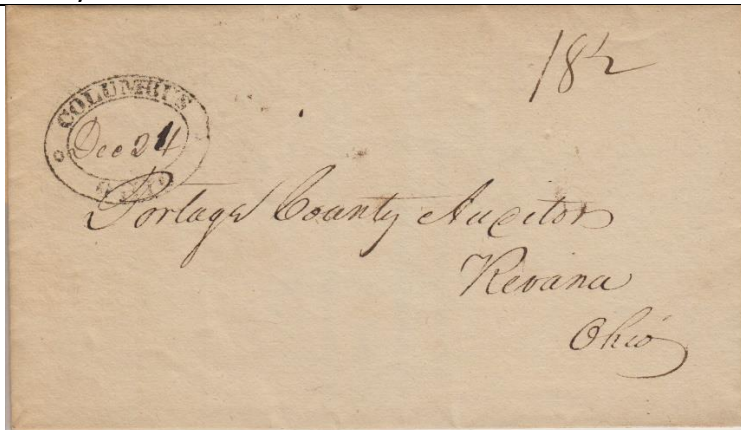 18½
COLUMBUS
Dec 24
OHIO
Portage County Auditor
Revana
Ohio